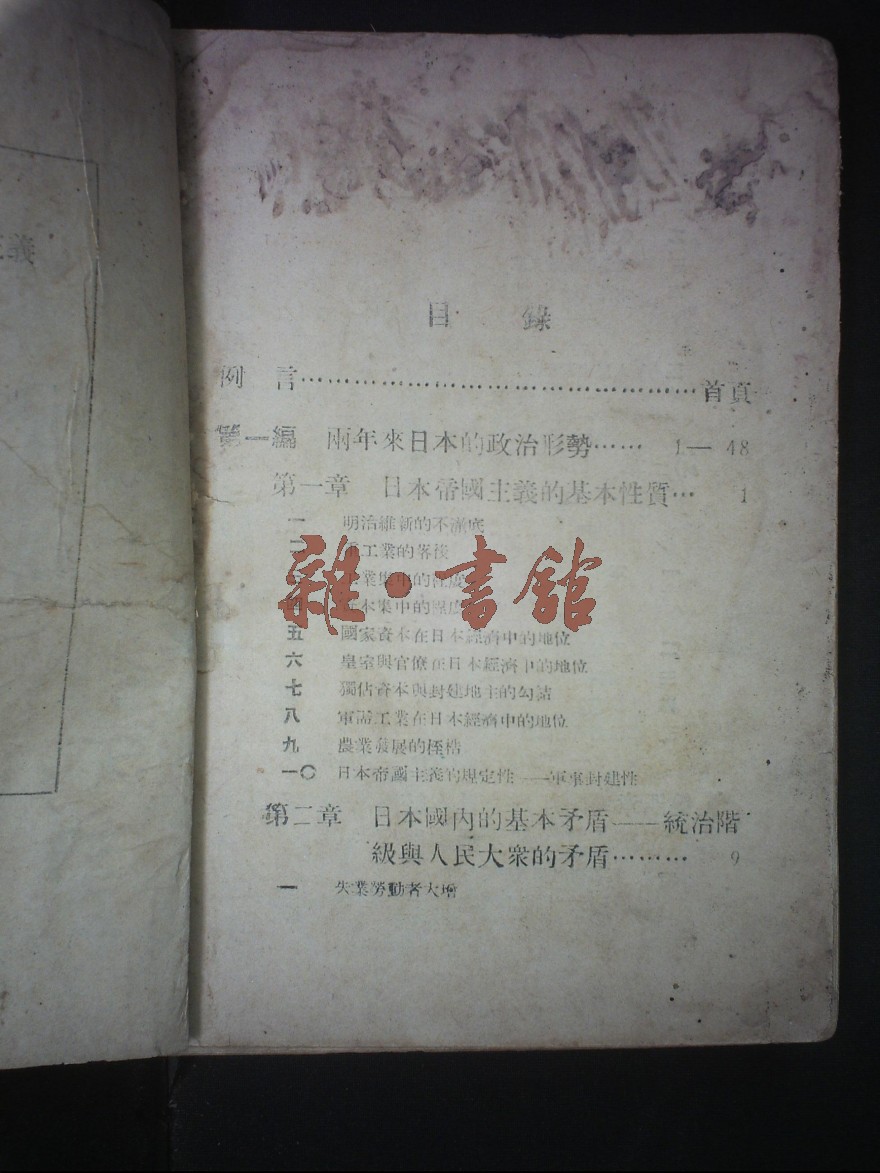 義
目 錄
例 言……………………………………首頁
第一編 兩年來日本的政治形勢…… 1— 48
第一章 日本帝國主義的基本性質… 1
一 明治維新的不澈底
工業的落後
業集中的程度
四 資本集中的程度
五 國家資本在日本經濟中的地位
六 皇室與官僚在日本經濟中的地位
七 獨佔資本與封建地主的勾結
八 軍需工業在日本經濟中的地位
九 農業發展的桎梏
一〇 日本帝國主義的規定性——軍事封建性
第二章 日本國內的基本矛盾——統治階
級與人民大衆的矛盾……… 9
一 失業勞動者大增
雜·書館